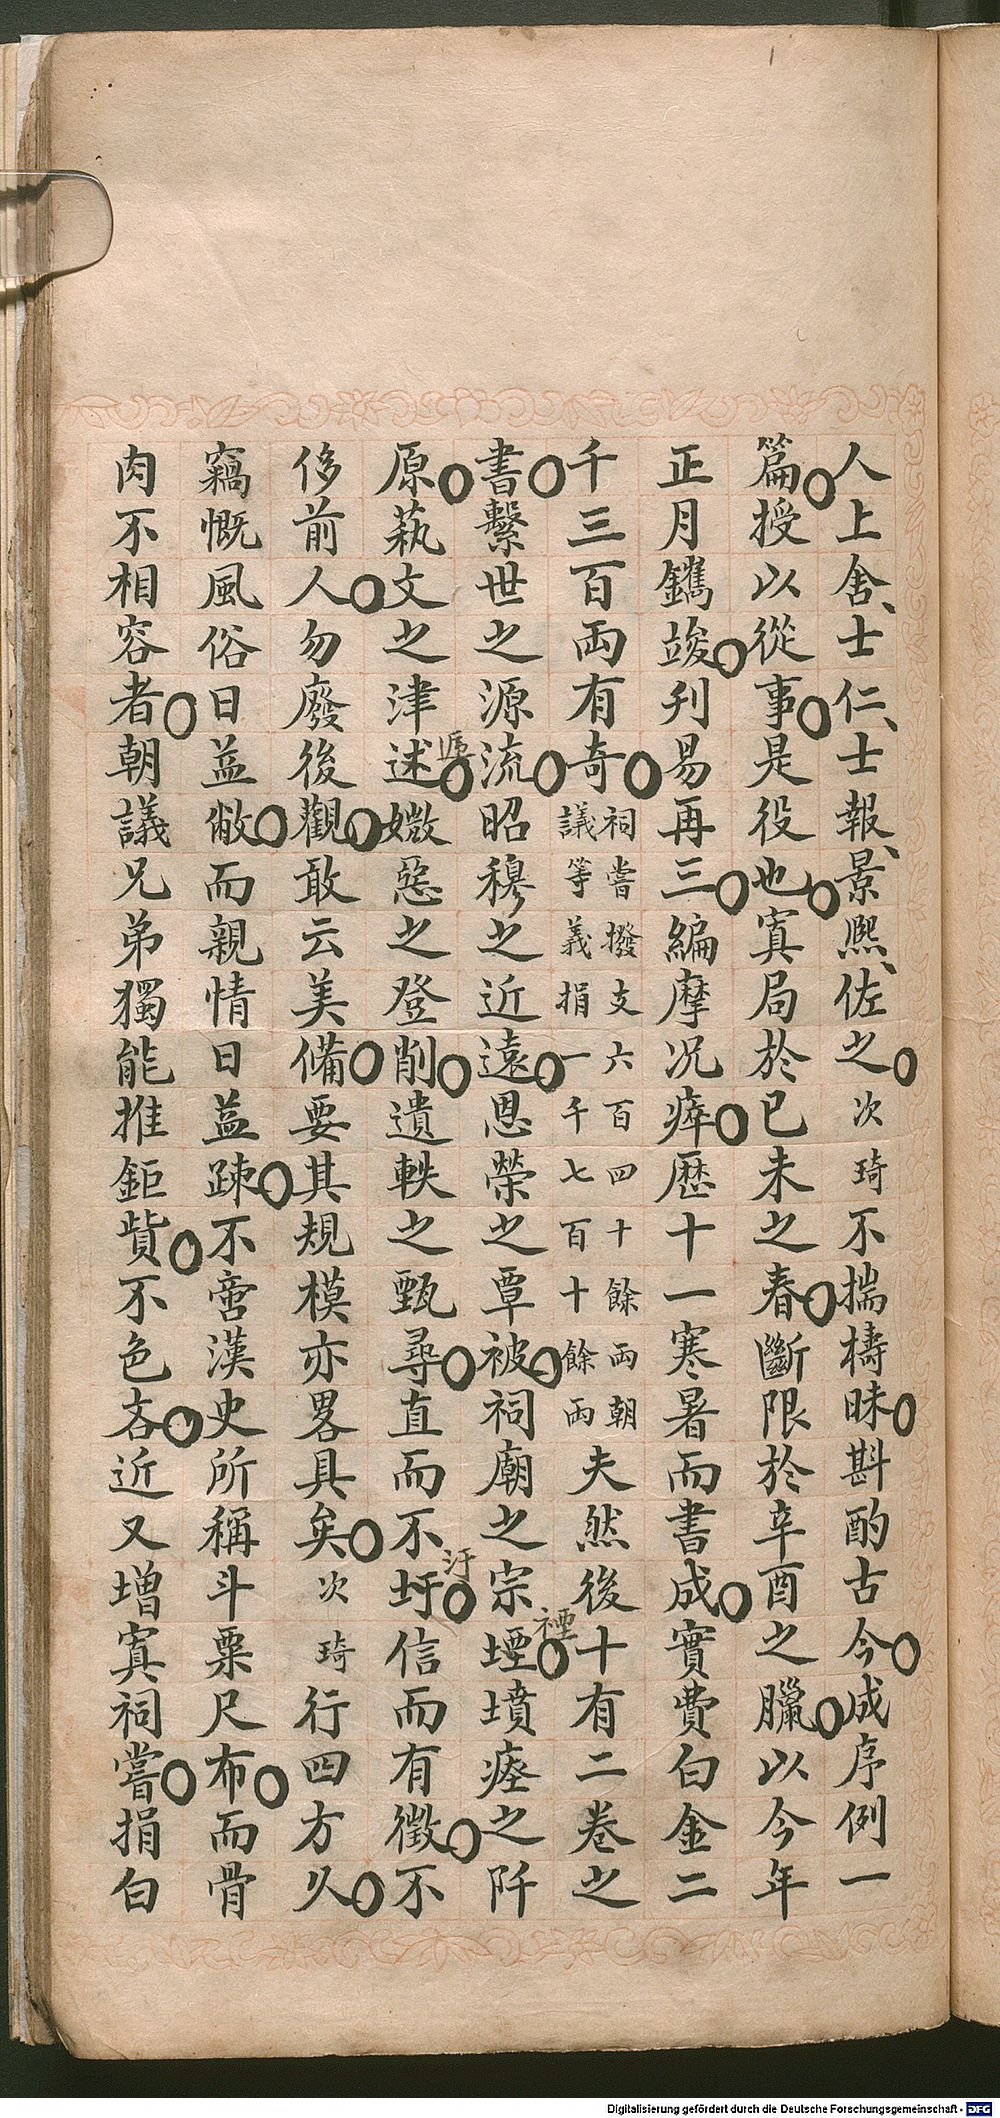 人上舍、士仁、士報、景熈、佐之○次琦不揣檮昧○斟酌古今○成序例一
篇○授以從事○是役也○寘局於已未之春○斷限於辛酉之臘○以今年
正月鐫竣○刊易再三○編摩况瘁○歷十一寒暑而書成○實費白金二
千三百両有奇○祠嘗撥支六百四十餘両朝
議等義捐一千七百十餘両夫然後十有二卷之
書○繫世之源流○昭穆之近遠○恩榮之覃被○祠廟之宗堙○墳㾑之阡
禋
原○蓺文之津述○媺惡之登削○遺軼之甄尋○直而不圩○信而有徵○不
汙
侈前人○勿廢後觀○敢云美備○要其規模亦畧具矣○次琦行四方乆○
竊慨風俗日益敝○而親情日益疎○不啻漢史所稱斗粟尺布○而骨
肉不相容者○朝議兄弟獨能推鉅貲○不色吝○近又增寘祠嘗○捐白
Digitalisierung gefördert durch die Deutsche Forschungsgemeinschaft - DFG